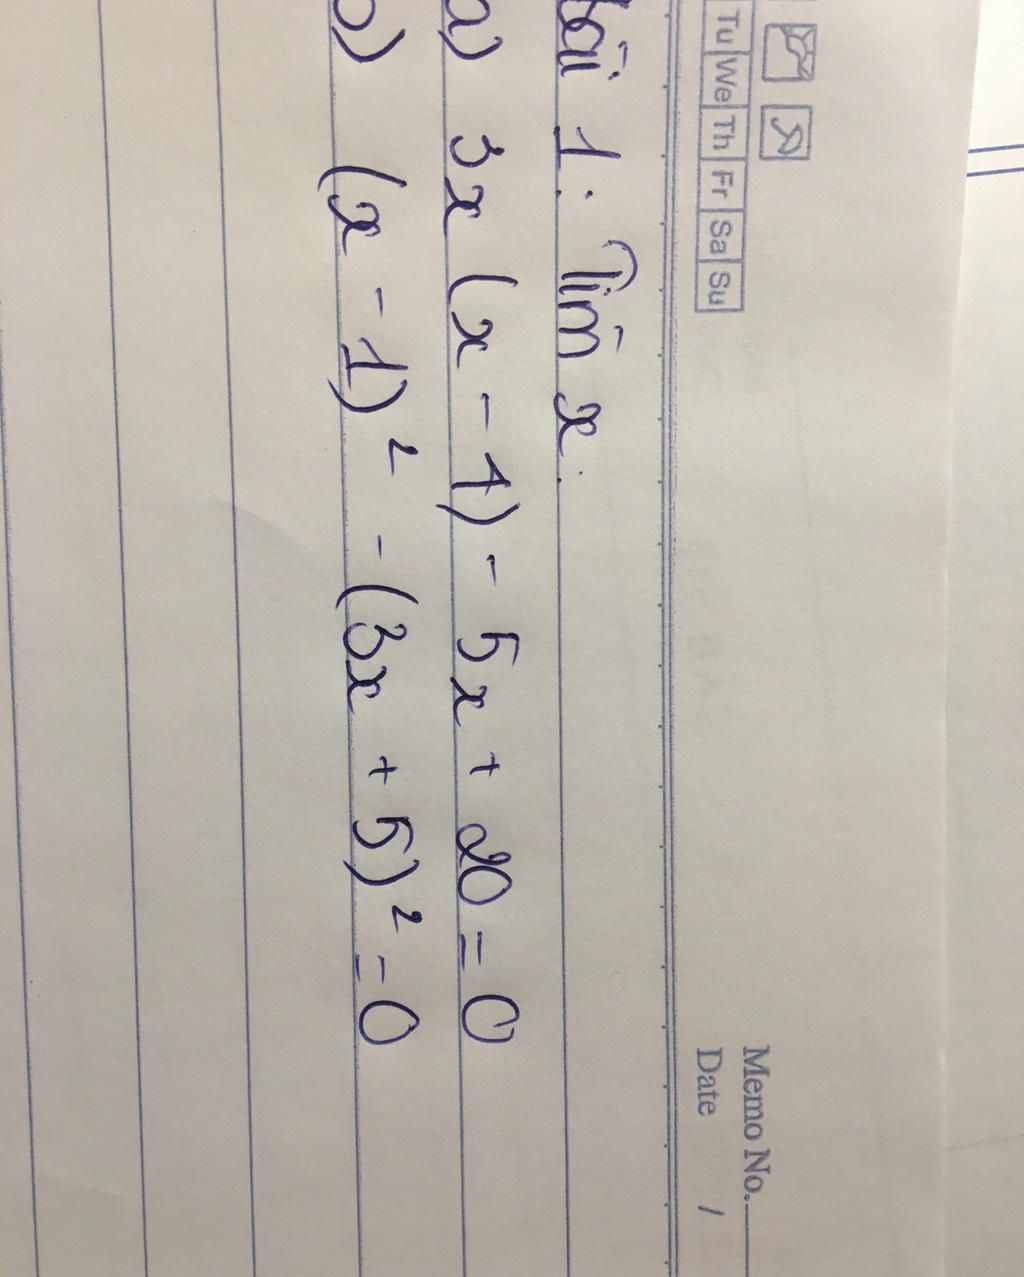 Memo No.
Tu We Th Fr Sa Su Date /
Bài 1: Tìm x:
a) 3x (x - 4) - 5x + 20 = 0
b) (x - 1)² - (3x + 5)² = 0